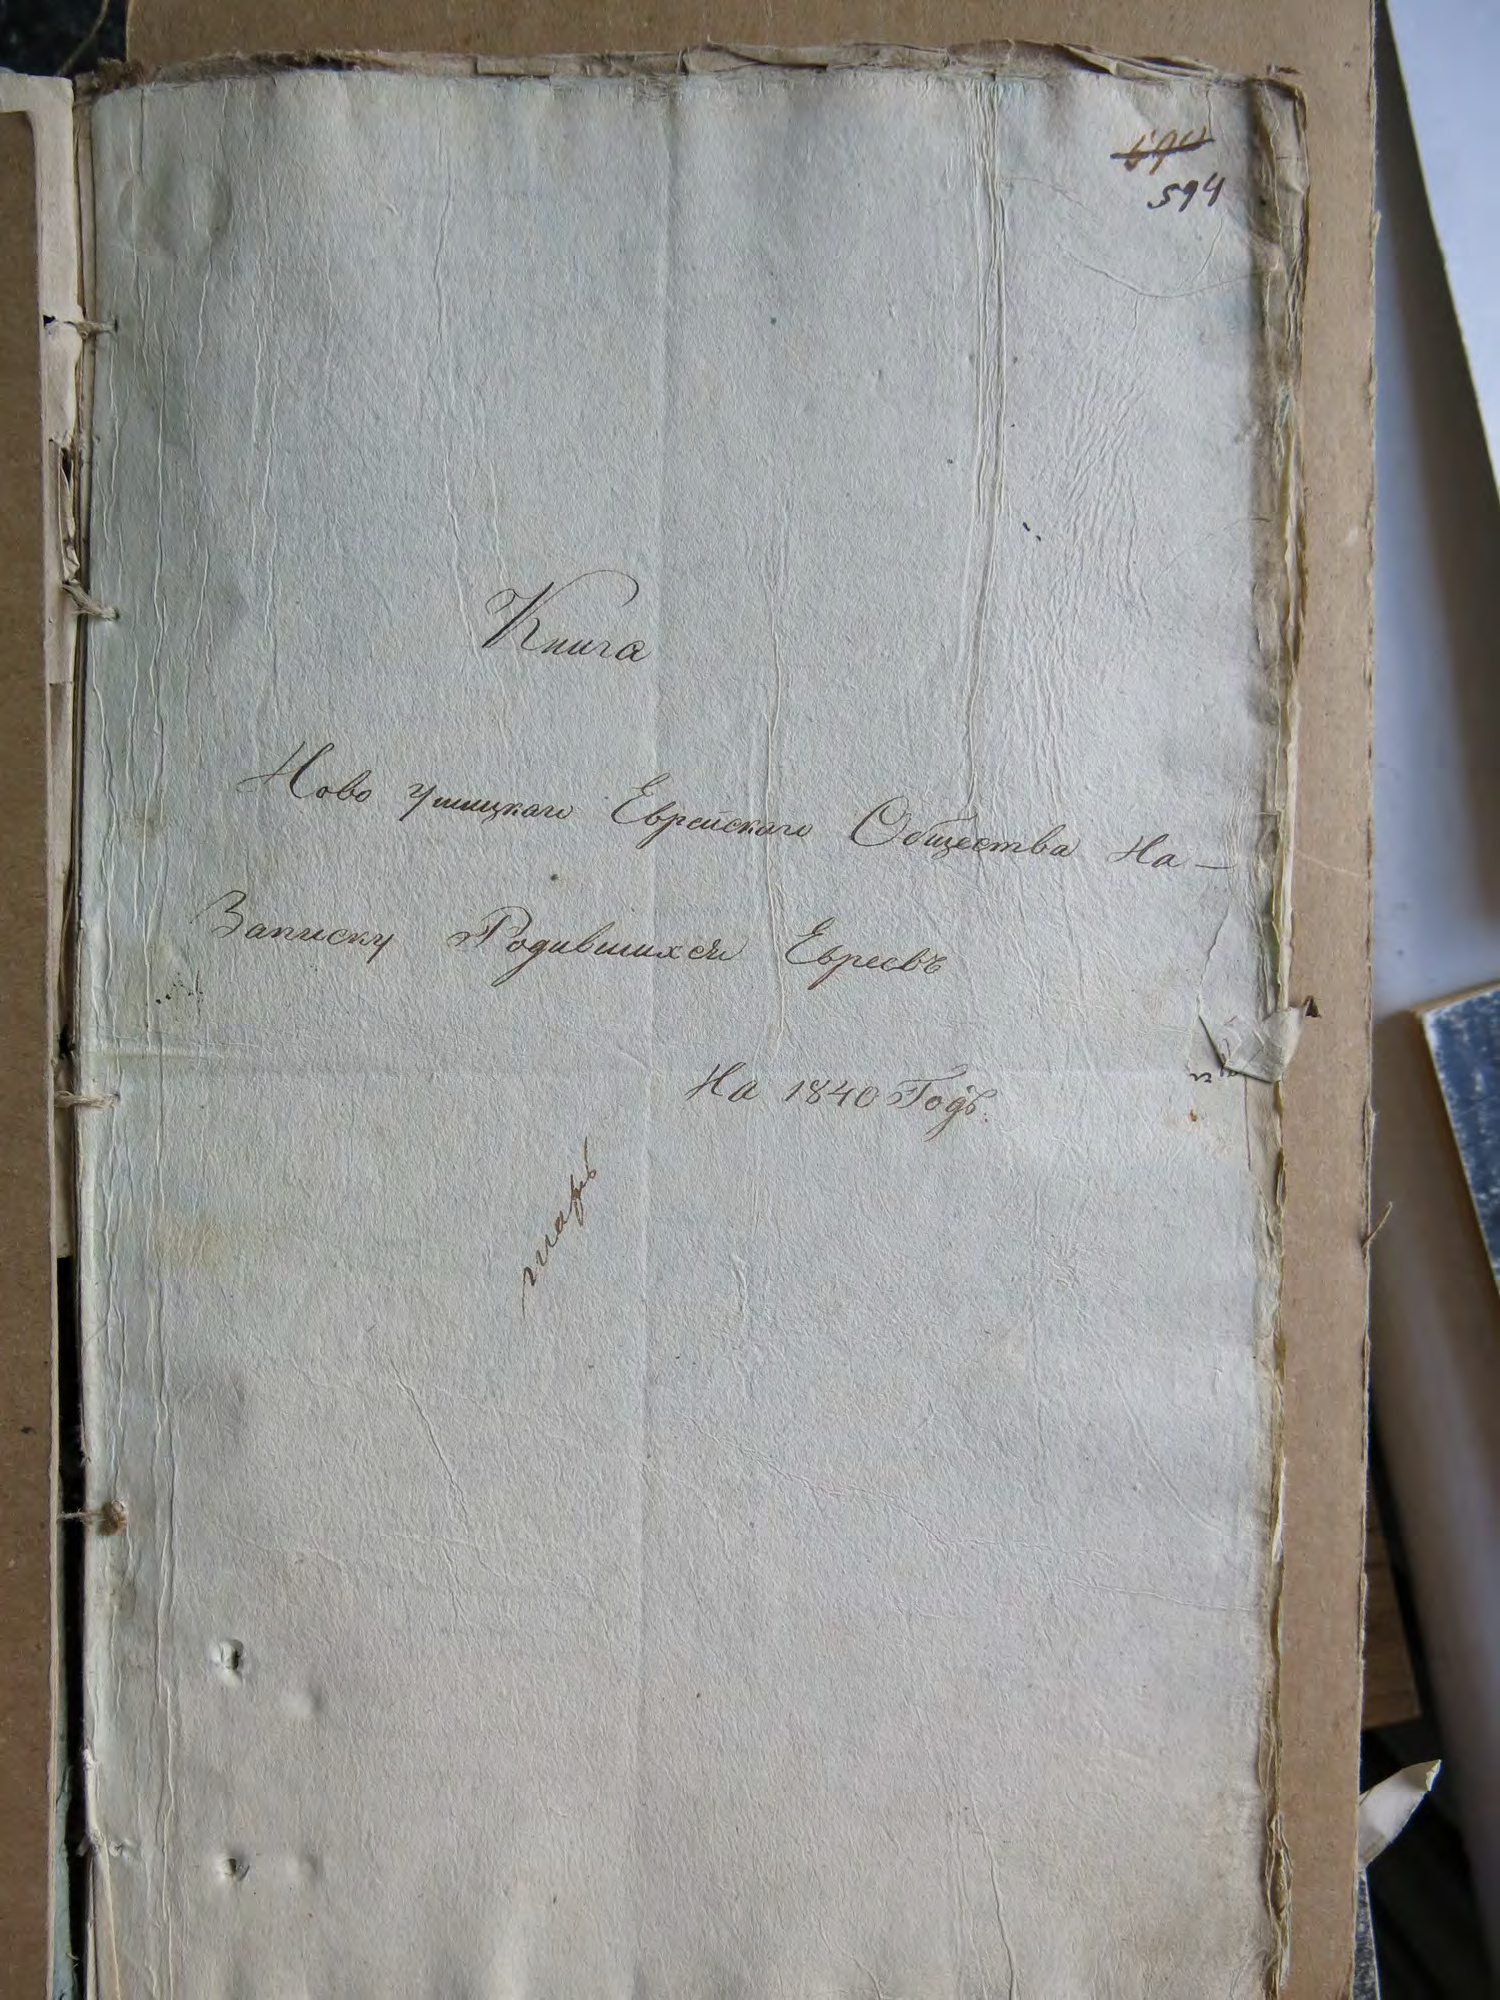 594
Книга
Ново Ушицкаго Еврейскаго Общества На —
Записку Родившихся Евреевъ
На 1840 Годъ.